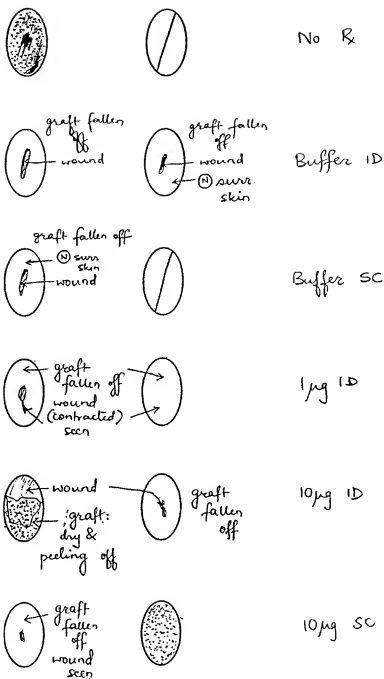 No Rx
graft fallen
off
wound
graft fallen
off
wound
Ⓝ surr.
skin
Buffer ID
graft fallen off
Ⓝ surr
skin
wound
Buffer SC
graft
fallen off
wound
(contracted)
seen
1µg ID
wound
graft:
dry &
peeling off
graft
fallen
off
10µg ID
graft
fallen
off
wound
seen
10µg SC